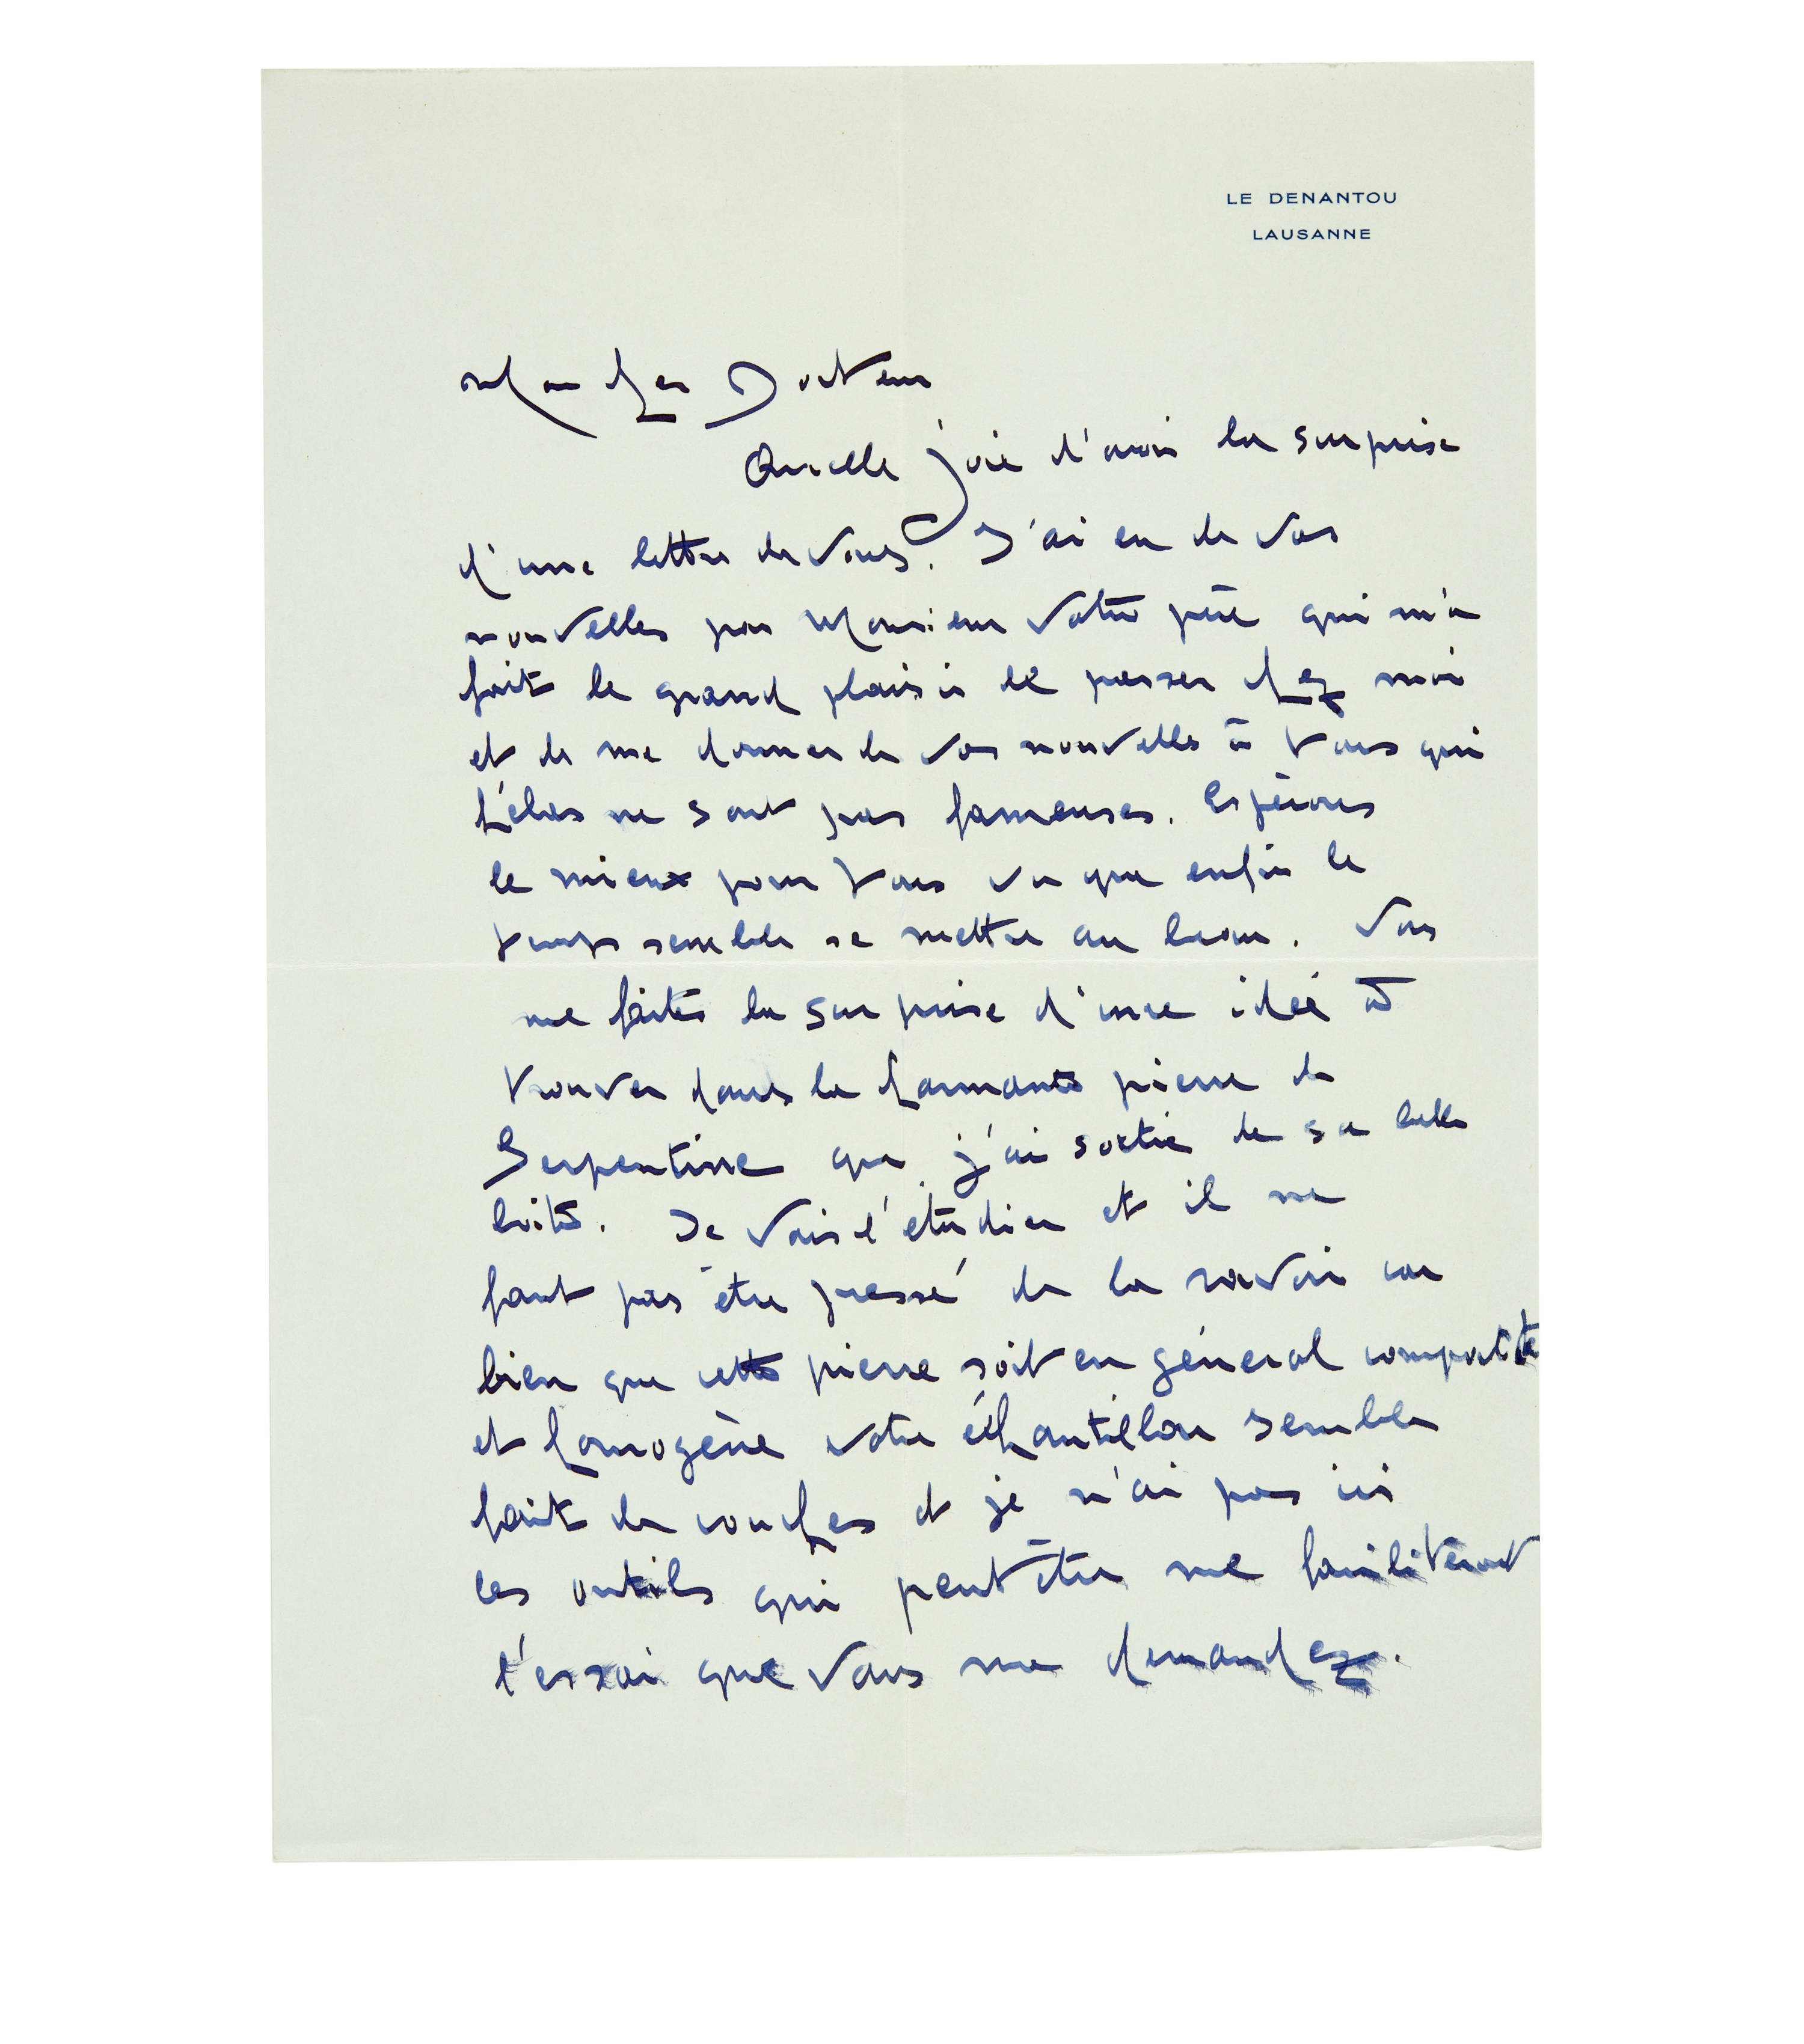 LE DENANTOU
LAUSANNE
Mon cher Docteur
Quelle joie d'avoir la surprise
d'une lettre de vous. J'ai eu de vos
nouvelles par Monsieur votre père qui m'a
fait le grand plaisir de passer chez moi
et de me donner de vos nouvelles à vous qui
hélas ne sont pas fameuses. Espérons
le mieux pour vous vu que enfin le
temps semble se mettre au beau. Vous
me faites la surprise d'une idée à
trouver dans la charmante pierre de
Serpentine que j'ai sortie de sa belle
boite. Je vais l'étudier et il ne
faut pas être pressé de la ravoir car
bien que cette pierre soit en général compacte
et homogène votre échantillon semble
fait de couches et je n'ai pas ici
les outils qui peut être me faciliteront
l'essai que vous me demandez.